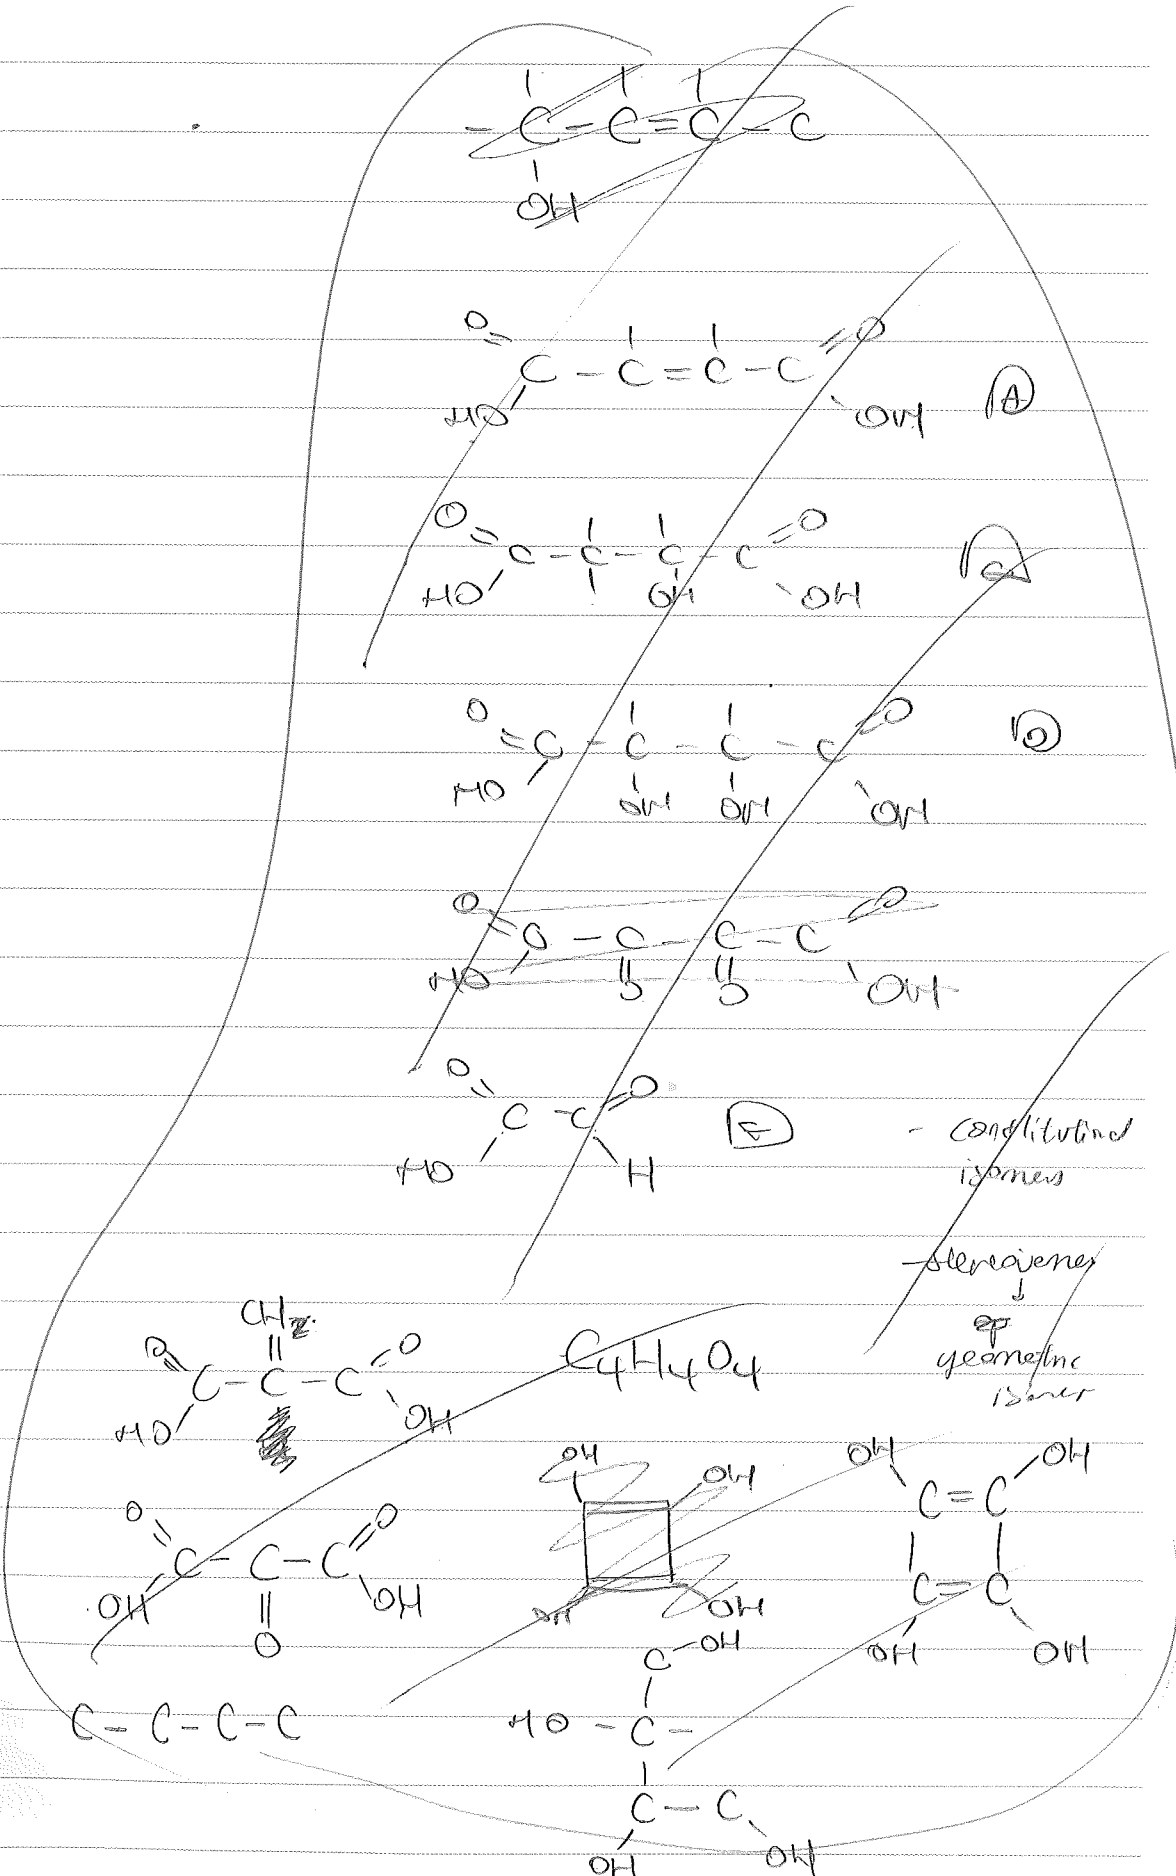 - C - C = C - C
OH
O = C - C = C - C = O
HO OH A
O = C - C - C - C = O C
HO OH OH
O = C - C - C - C = O D
HO OH OH OH
O = C - C - C - C = O
HO O O OH
O = C - C = O E
HO H
- constitutinal
isomers
- stereoisomer
↓
geometric
isomer
CH2
O = C - C - C = O C4H4O4
HO OH
OH OH OH OH
C = C
O = C - C - C = O
OH O OH
C = C
OH OH OH OH
C - OH
C - C - C - C HO - C -
C - C
OH OH